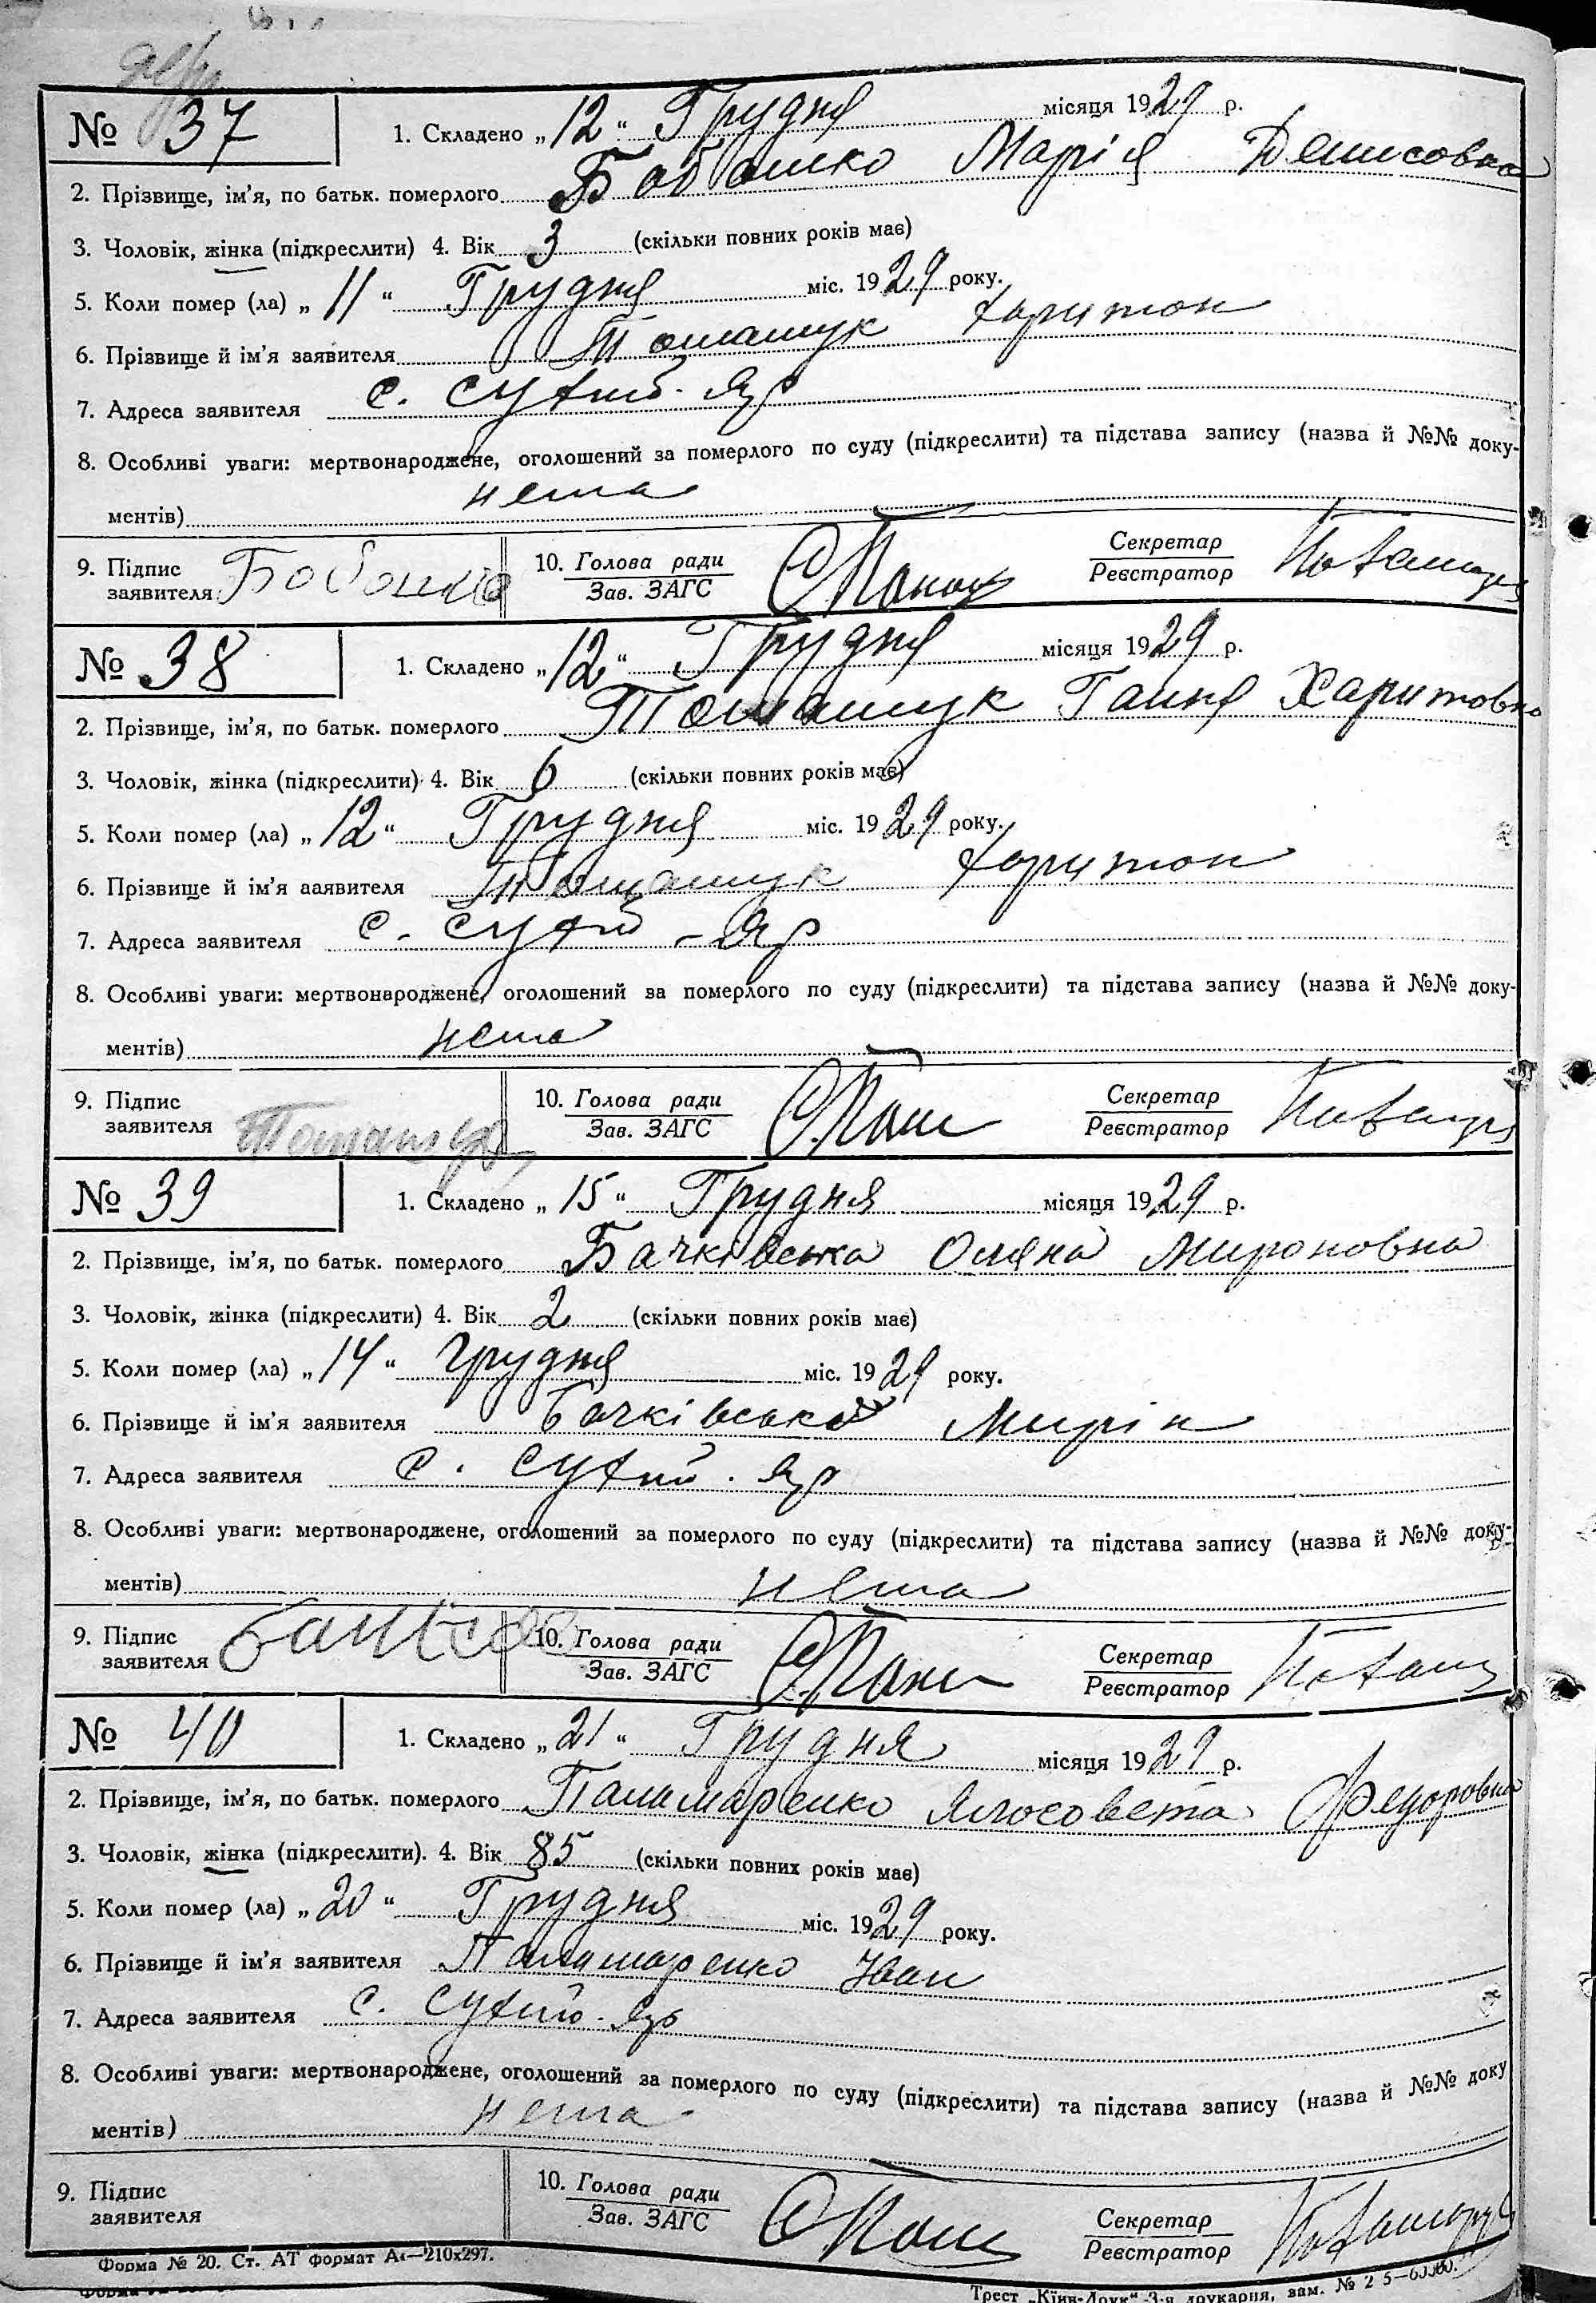 № 37 1. Складено „12“ Грудня місяця 1929 р.
2. Прізвище, ім'я, по батьк. померлого Бабошко Марія Денисовна
3. Чоловік, жінка (підкреслити) 4. Вік 3 (скільки повних років має)
5. Коли помер (ла) „11“ Грудня міс. 1929 року.
6. Прізвище й ім'я заявителя Томашук Харитон
7. Адреса заявителя с. Сухий-Яр
8. Особливі уваги: мертвонароджене, оголошений за померлого по суду (підкреслити) та підстава запису (назва й №№ доку-
ментів) нема
9. Підпис заявителя 10. Голова ради Зав. ЗАГС Секретар Реєстратор
№ 38 1. Складено „12“ Грудня місяця 1929 р.
2. Прізвище, ім'я, по батьк. померлого Томашук Гання Харитовно
3. Чоловік, жінка (підкреслити) 4. Вік 6 (скільки повних років має)
5. Коли помер (ла) „12“ Грудня міс. 1929 року.
6. Прізвище й ім'я заявителя Томашук Харитон
7. Адреса заявителя с. Сухий-Яр
8. Особливі уваги: мертвонароджене, оголошений за померлого по суду (підкреслити) та підстава запису (назва й №№ доку-
ментів) нема
9. Підпис заявителя 10. Голова ради Зав. ЗАГС Секретар Реєстратор
№ 39 1. Складено „15“ Грудня місяця 1929 р.
2. Прізвище, ім'я, по батьк. померлого Бачківська Оляна Мироновна
3. Чоловік, жінка (підкреслити) 4. Вік 2 (скільки повних років має)
5. Коли помер (ла) „14“ Грудня міс. 1929 року.
6. Прізвище й ім'я заявителя Бачківський Мирін
7. Адреса заявителя с. Сухий. Яр
8. Особливі уваги: мертвонароджене, оголошений за померлого по суду (підкреслити) та підстава запису (назва й №№ доку-
ментів) нема
9. Підпис заявителя 10. Голова ради Зав. ЗАГС Секретар Реєстратор
№ 40 1. Складено „21“ Грудня місяця 1929 р.
2. Прізвище, ім'я, по батьк. померлого Паламаренко Ялосовета Федоровна
3. Чоловік, жінка (підкреслити). 4. Вік 85 (скільки повних років має)
5. Коли помер (ла) „20“ Грудня міс. 1929 року.
6. Прізвище й ім'я заявителя Паламаренко Іван
7. Адреса заявителя с. Сухий. Яр
8. Особливі уваги: мертвонароджене, оголошений за померлого по суду (підкреслити) та підстава запису (назва й №№ доку
ментів) нема
9. Підпис заявителя 10. Голова ради Зав. ЗАГС Секретар Реєстратор
Форма № 20. Ст. АТ формат А4—210х297.
Трест „Київ-Друк“ 3-я друкарня, зам. №